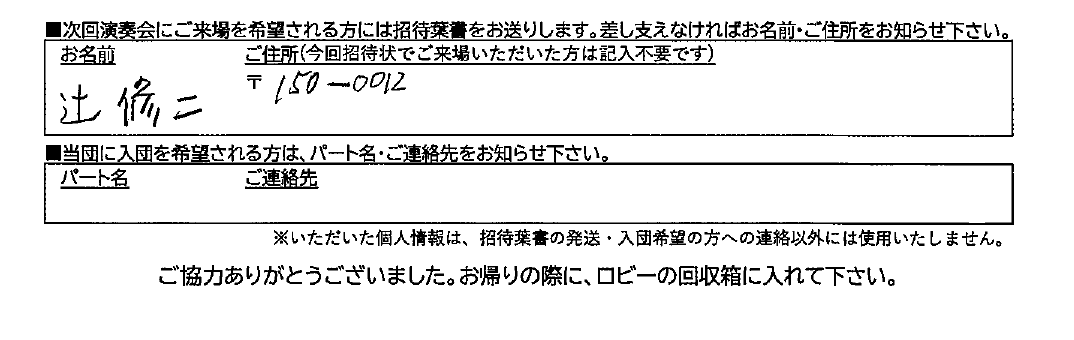 ■次回演奏会にご来場を希望される方には招待葉書をお送りします。差し支えなければお名前・ご住所をお知らせ下さい。
お名前 ご住所(今回招待状でご来場いただいた方は記入不要です)
辻 修二 〒150-0012
■当団に入団を希望される方は、パート名・ご連絡先をお知らせ下さい。
パート名 ご連絡先
※いただいた個人情報は、招待葉書の発送・入団希望の方への連絡以外には使用いたしません。
ご協力ありがとうございました。お帰りの際に、ロビーの回収箱に入れて下さい。